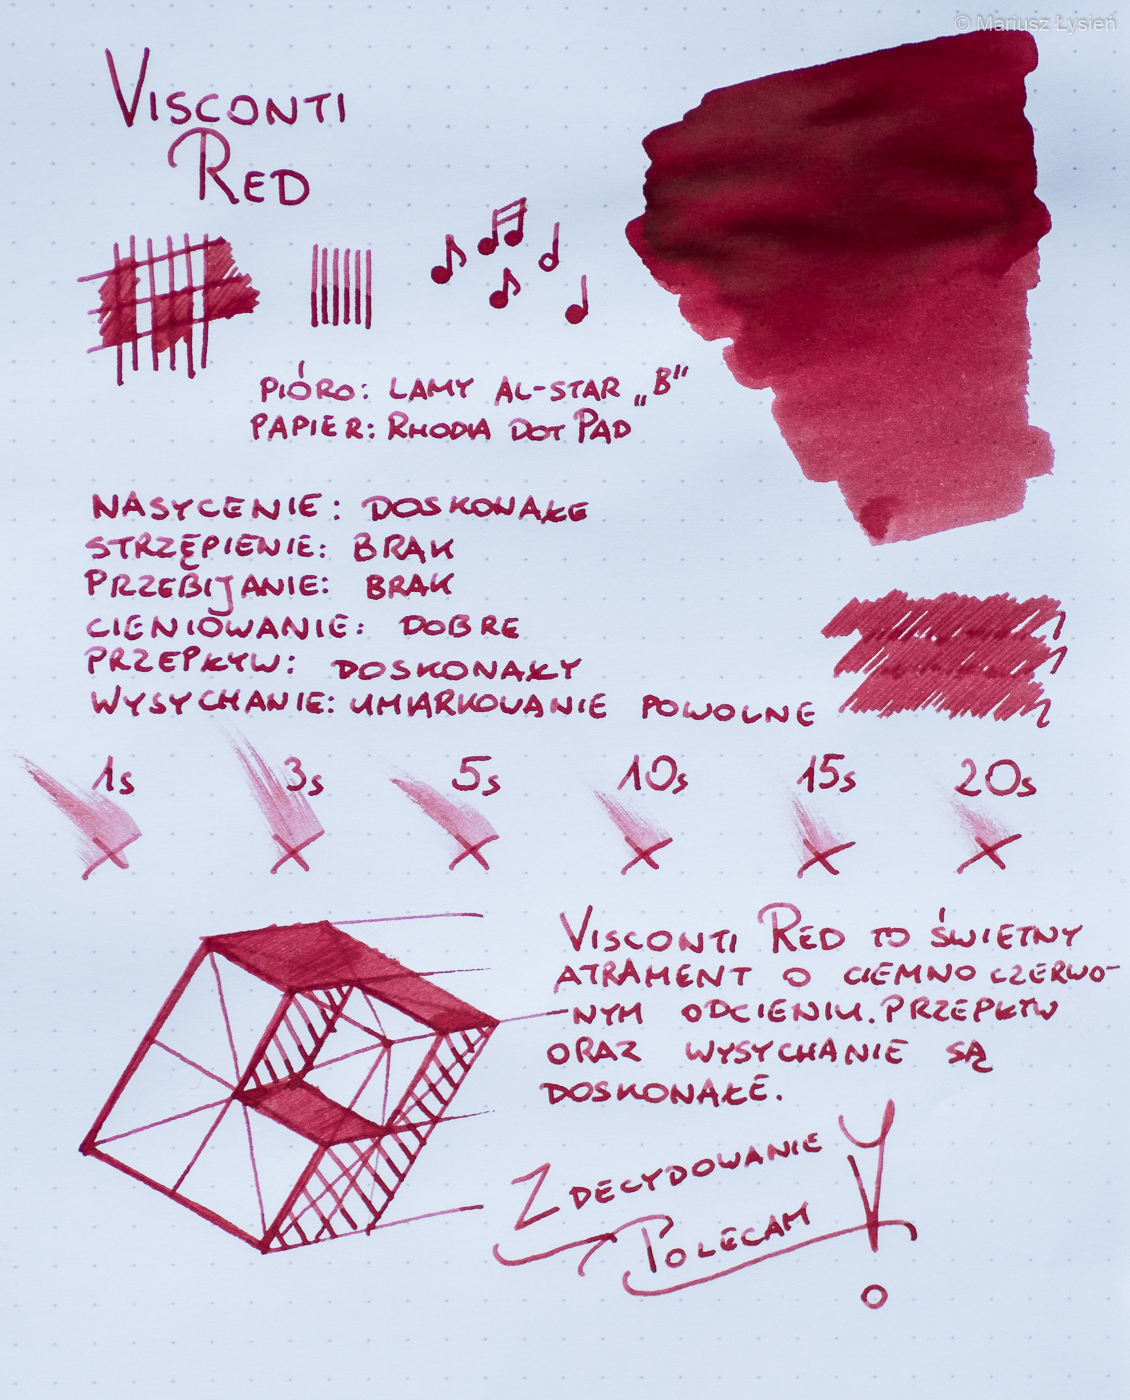 © Mariusz Łysień
VISCONTI
RED
PIÓRO: LAMY AL-STAR „B”
PAPIER: RHODIA DOT PAD
NASYCENIE: DOSKONAŁE
STRZĘPIENIE: BRAK
PRZEBIJANIE: BRAK
CIENIOWANIE: DOBRE
PRZEPŁYW: DOSKONAŁY
WYSYCHANIE: UMIARKOWANIE POWOLNE
1s 3s 5s 10s 15s 20s
VISCONTI RED TO ŚWIETNY
ATRAMENT O CIEMNO CZERWO-
NYM ODCIENIU. PRZEPŁYW
ORAZ WYSYCHANIE SĄ
DOSKONAŁE.
ZDECYDOWANIE
POLECAM!